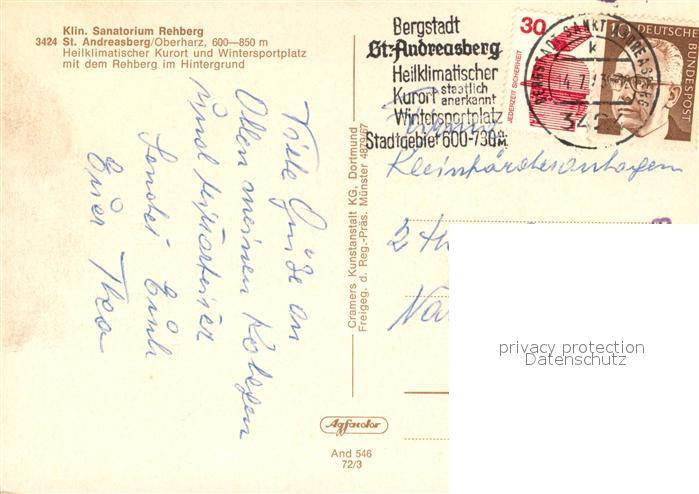 Klin. Sanatorium Rehberg
3424 St. Andreasberg/Oberharz, 600—850 m
Heilklimatischer Kurort und Wintersportplatz
mit dem Rehberg im Hintergrund
Viele Grüße an
Allen meinen Kolegen
und Mitarbeiter
Sendet Euch
Euer Theo
Cramers Kunstanstalt KG, Dortmund
Freigeg. d. Reg.-Präs. Münster 4879/67
Agfacolor
And 546
72/3
Bergstadt
St. Andreasberg
Heilklimatischer
Kurort staatlich anerkannt
Wintersportplatz
Stadtgebiet 600-730 ü. M.
30
JEDERZEIT SICHERHEIT
DEUTSCHE BUNDESPOST
BERGSTADT SANKT ANDREASBERG
k
Firma
2
privacy protection
Datenschutz